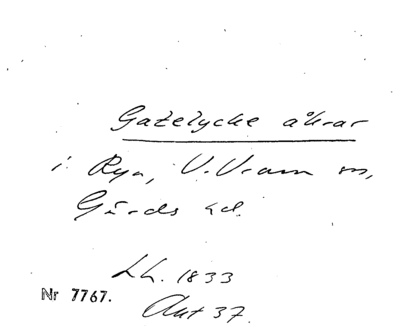 Gatelycke åkrar
i Rya, V. Vram sn,
Gärds hd.
Lh. 1833
Nr 7767.
Akt 37.